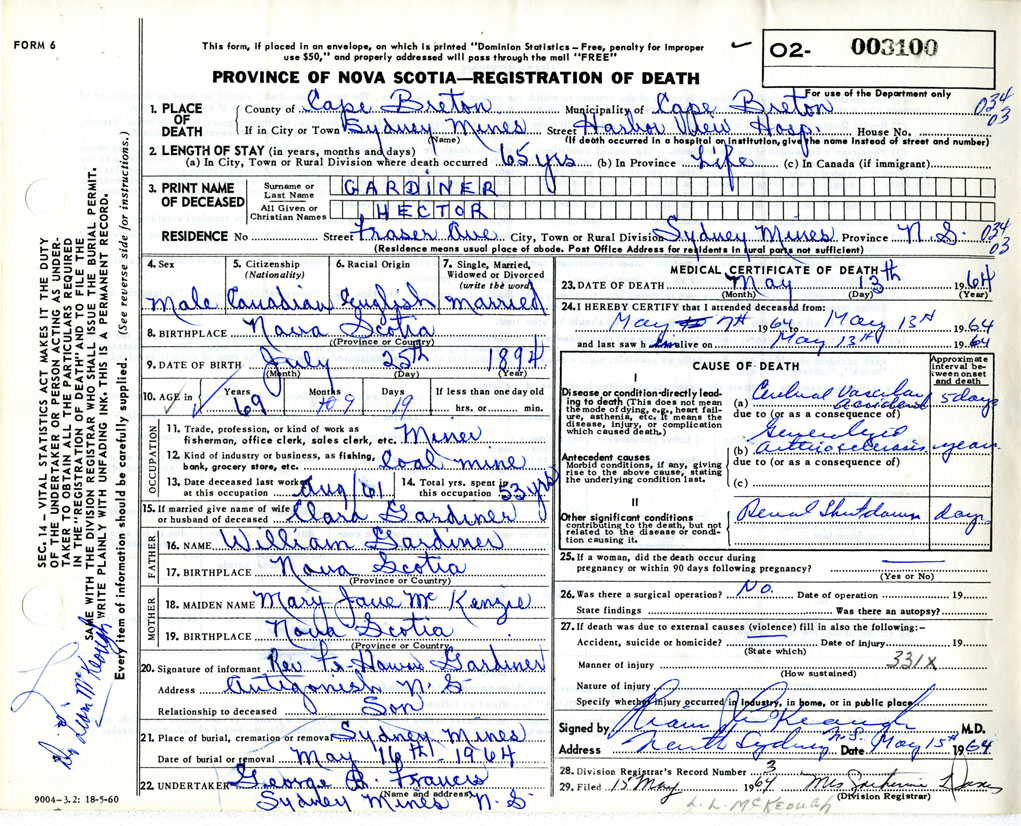 FORM 6
This form, if placed in an envelope, on which is printed "Dominion Statistics – Free, penalty for improper
use $50," and properly addressed will pass through the mail "FREE"
✓
O2- 003100
PROVINCE OF NOVA SCOTIA—REGISTRATION OF DEATH
For use of the Department only
034
03
1. PLACE OF DEATH
County of Cape Breton Municipality of Cape Breton
If in City or Town Sydney Mines Street Harbor View Hosp. House No.
(Name) (If death occurred in a hospital or institution, give the name instead of street and number)
2. LENGTH OF STAY (in years, months and days)
(a) In City, Town or Rural Division where death occurred 65 yrs (b) In Province Life (c) In Canada (if immigrant)
3. PRINT NAME OF DECEASED
Surname or Last Name GARDINER
All Given or Christian Names HECTOR
RESIDENCE No Street Fraser Ave City, Town or Rural Division Sydney Mines Province N.S.
034
03
(Residence means usual place of abode. Post Office Address for residents in rural parts not sufficient)
4. Sex
Male
5. Citizenship (Nationality)
Canadian
6. Racial Origin
English
7. Single, Married, Widowed or Divorced (write the word)
Married
8. BIRTHPLACE Nova Scotia
(Province or Country)
9. DATE OF BIRTH July 25th 1894
(Month) (Day) (Year)
10. AGE in Years Months Days If less than one day old
69 9 19 hrs. or min.
OCCUPATION
11. Trade, profession, or kind of work as
fisherman, office clerk, sales clerk, etc. Miner
12. Kind of industry or business, as fishing,
bank, grocery store, etc. Coal mine
13. Date deceased last worked
at this occupation Aug/61
14. Total yrs. spent in
this occupation 53 yrs
15. If married give name of wife
or husband of deceased Clara Gardiner
FATHER
16. NAME William Gardiner
17. BIRTHPLACE Nova Scotia
(Province or Country)
MOTHER
18. MAIDEN NAME Mary Jane McKenzie
19. BIRTHPLACE Nova Scotia
(Province or Country)
20. Signature of informant Rev. Fr. Gardiner
Address Antigonish N.S
Relationship to deceased Son
21. Place of burial, cremation or removal Sydney Mines
Date of burial or removal May 16th - 1964
22. UNDERTAKER George B. Francis
(Name and address)
Sydney Mines N.S
9004–3.2: 18-5-60
MEDICAL CERTIFICATE OF DEATH
23. DATE OF DEATH May 13th 1964
(Month) (Day) (Year)
24. I HEREBY CERTIFY that I attended deceased from:
May 7th 1964 to May 13th 1964
and last saw him alive on May 13th 1964
CAUSE OF DEATH
Approximate interval between onset and death
I
Disease or condition directly leading to death (This does not mean the mode of dying, e.g., heart failure, asthenia, etc. It means the disease, injury, or complication which caused death.)
(a) Cerebral Vascular Accident 5 days
due to (or as a consequence of)
Antecedent causes
Morbid conditions, if any, giving rise to the above cause, stating the underlying condition last.
(b) Generalized Arteriosclerosis years
due to (or as a consequence of)
(c)
II
Other significant conditions
contributing to the death, but not related to the disease or condition causing it.
Renal Shutdown days
25. If a woman, did the death occur during
pregnancy or within 90 days following pregnancy?
(Yes or No)
26. Was there a surgical operation? No. Date of operation 19
State findings Was there an autopsy?
27. If death was due to external causes (violence) fill in also the following:–
Accident, suicide or homicide? Date of injury 19
(State which)
Manner of injury 331X
(How sustained)
Nature of injury
Specify whether injury occurred in industry, in home, or in public place
Signed by Liam J McKeough M.D.
Address North Sydney N.S. Date May 15th 1964
28. Division Registrar's Record Number 3
29. Filed 15 May 1964 Mrs
(Division Registrar)
L.L. McKeough
SEC. 14 – VITAL STATISTICS ACT MAKES IT THE DUTY
OF THE UNDERTAKER OR PERSON ACTING AS UNDERTAKER
TO OBTAIN ALL THE PARTICULARS REQUIRED
IN THE "REGISTRATION OF DEATH" AND TO FILE THE
SAME WITH THE DIVISION REGISTRAR WHO SHALL ISSUE THE BURIAL PERMIT.
WRITE PLAINLY WITH UNFADING INK. THIS IS A PERMANENT RECORD.
Every item of information should be carefully supplied. (See reverse side for instructions.)
Dr. Liam McKeough